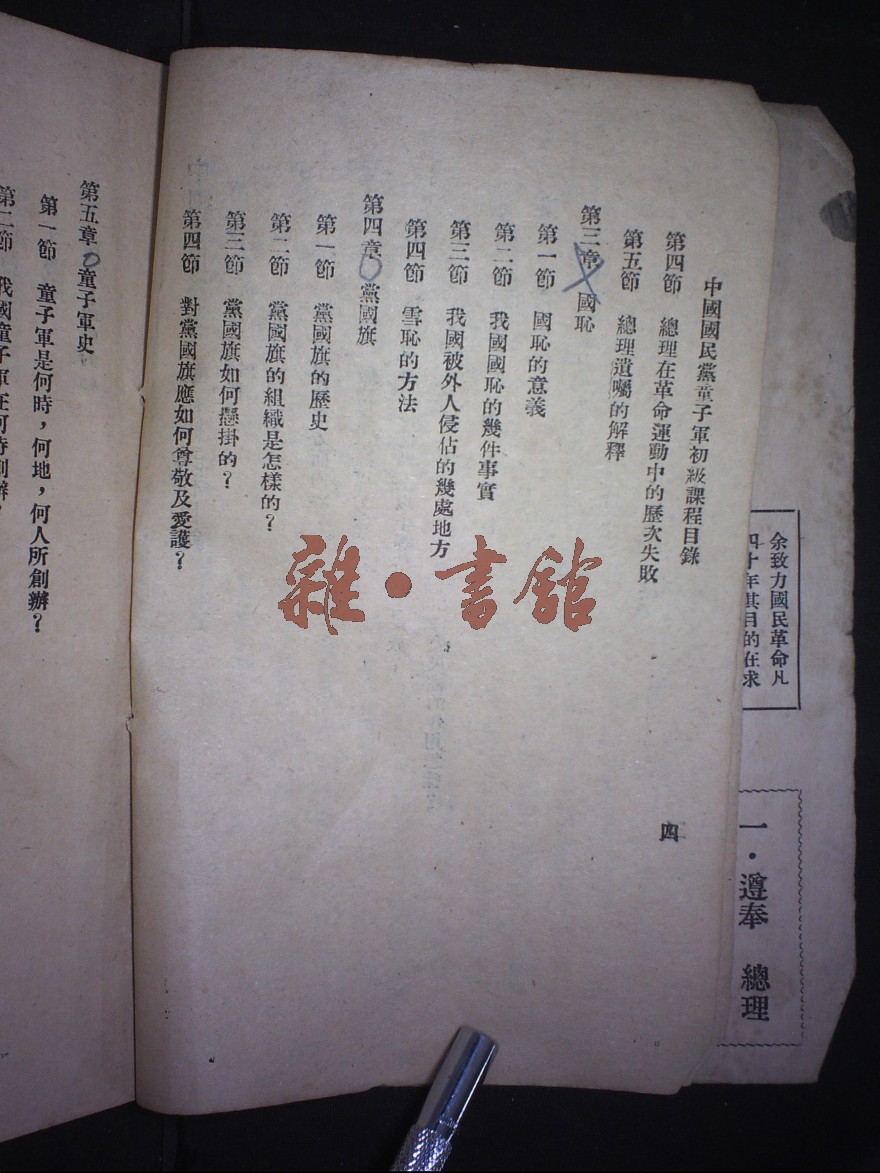 余致力國民革命凡
四十年其目的在求
一・遵奉　總理
中國國民黨童子軍初級課程目錄
四
第四節　總理在革命運動中的歷次失敗
第五節　總理遺囑的解釋
第三章　國恥
第一節　國恥的意義
第二節　我國國恥的幾件事實
第三節　我國被外人侵佔的幾處地方
第四節　雪恥的方法
第四章　黨國旗
第一節　黨國旗的歷史
第二節　黨國旗的組織是怎樣的？
第三節　黨國旗如何懸掛的？
第四節　對黨國旗應如何尊敬及愛護？
第五章　童子軍史
第一節　童子軍是何時，何地，何人所創辦？
第二節　我國童子軍在何時創辦？
雜・書館